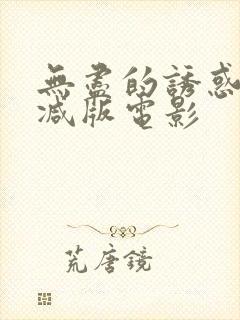 無盡的誘惑
減版電影
荒唐鏡